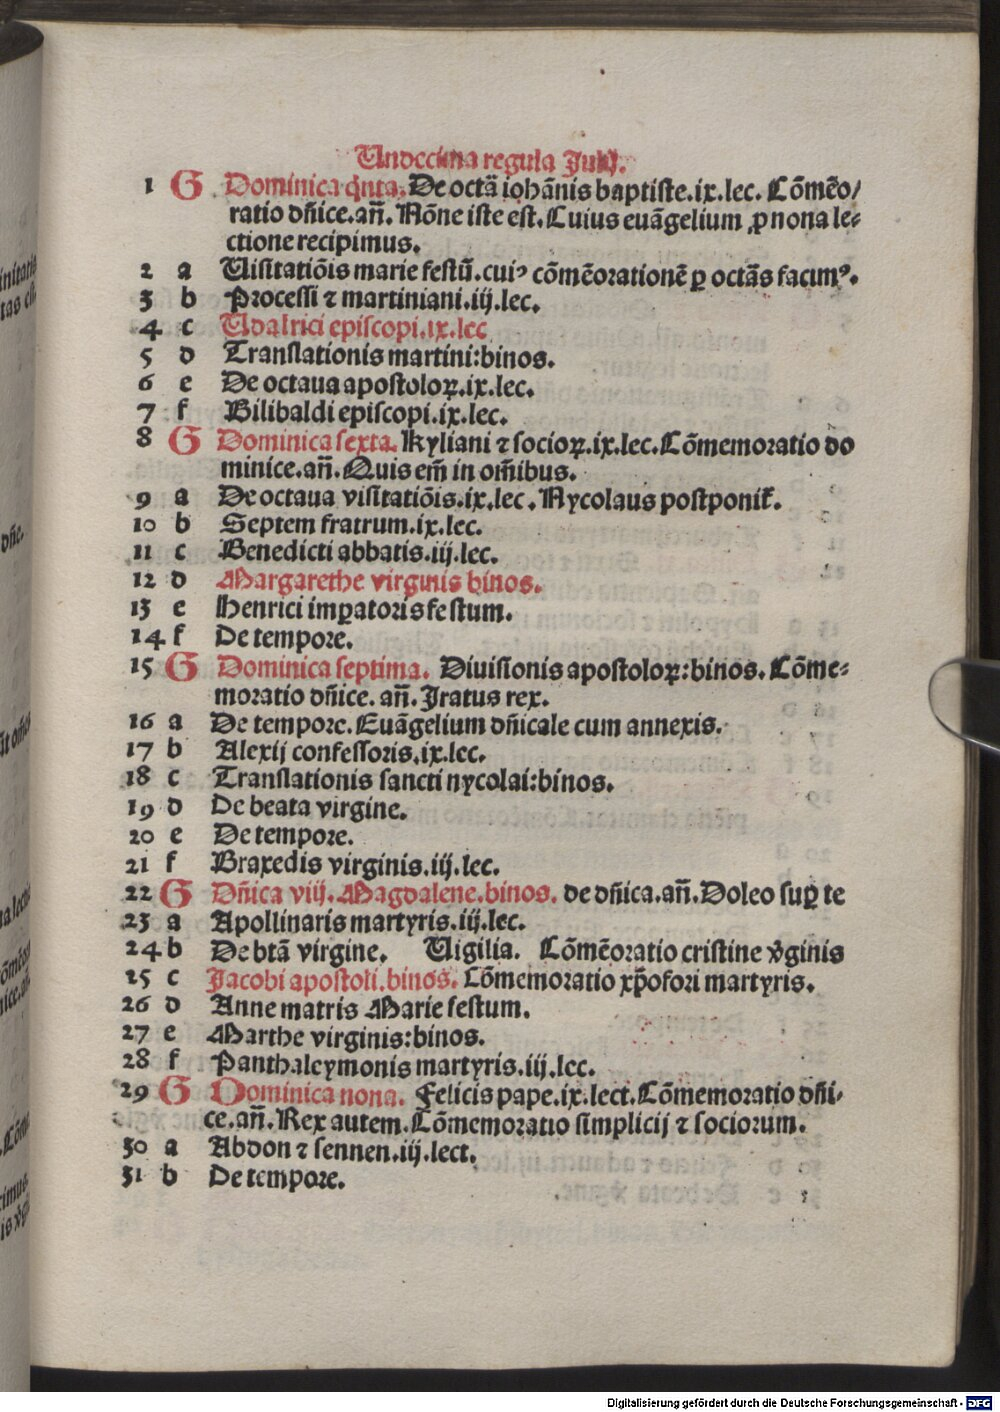 Undecima regula Julij.
1 G Dominica q̈nta. De octã iohãnis baptiste.ix.lec. Cõmẽo/
ratio dñice.añ. Nõne iste est. Cuius euãgelium ꝓ nona le-
ctione recipimus.
2 a Uisitatiõis marie festũ.cuiꝰ cõmẽorationẽ ꝑ octãs facimꝰ.
3 b Processi ⁊ martiniani.iij.lec.
4 c Udalrici episcopi.ix.lec
5 d Translationis martini:binos.
6 e De octaua apostoloꝝ.ix.lec.
7 f Bilibaldi episcopi.ix.lec.
8 G Dominica sexta. Kyliani ⁊ socioꝝ.ix.lec.Cõmemoratio do
minice.añ. Quis em̃ in om̃ibus.
9 a De octaua visitatiõis.ix.lec. Nycolaus postponit᷑.
10 b Septem fratrum.ix.lec.
11 c Benedicti abbatis.iij.lec.
12 d Margarethe virginis binos.
13 e Henrici imꝑatoris festum.
14 f De tempore.
15 G Dominica septima. Diuisionis apostoloꝝ:binos. Cõme-
moratio dñice. añ. Iratus rex.
16 a De tempore. Euãgelium dñicale cum annexis.
17 b Alexij confessoris.ix.lec.
18 c Translationis sancti nycolai:binos.
19 d De beata virgine.
20 e De tempore.
21 f Braxedis virginis.iij.lec.
22 G Dñica viij. Magdalene.binos. de dñica.añ. Doleo suꝑ te
23 a Apollinaris martyris.iij.lec.
24 b De btã virgine. Uigilia. Cõmẽoratio cristine v̾ginis
25 c Jacobi apostoli.binos. Cõmemoratio xp̃ofori martyris.
26 d Anne matris Marie festum.
27 e Marthe virginis:binos.
28 f Panthaleymonis martyris.iij.lec.
29 G Dominica nona. Felicis pape.ix.lect. Cõmemoratio dñi-
ce.añ. Rex autem. Cõmemoratio simplicij ⁊ sociorum.
30 a Abdon ⁊ sennen.iij.lect.
31 b De tempore.
Digitalisierung gefördert durch die Deutsche Forschungsgemeinschaft - DFG